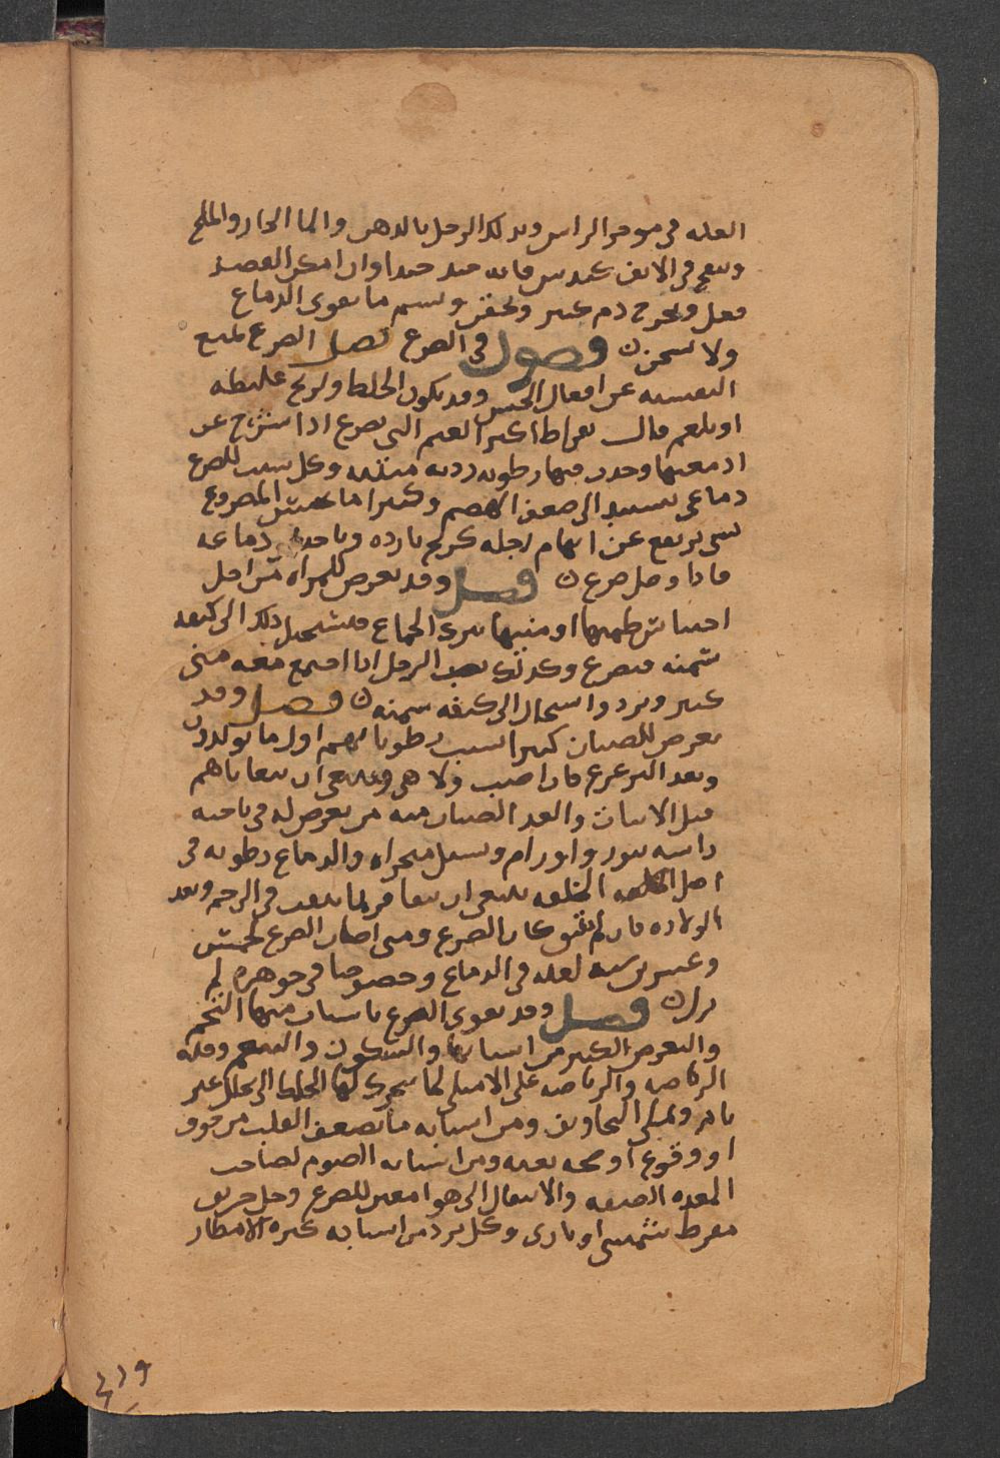 العله في موخر الراس وبدلك الرجل بالدهن والما الحار والملح
وينفخ في الانف كندس فانه جيد جدا وان امكن الفصد
فعل ويخرج دم كثير ويحقن ويشم ما يقوي الدماغ
ولا يسخن فصول في الصرع فصل الصرع يمنع
النفسيه عن افعال الحس وقد يكون الخلط او لريح غليظه
او بلغم قال بقراط اكثر الغنم التي تصرع اذا شرح عن
ادمغتها وجدت فيها رطوبه رديه منتنه وكل سبب للصرع
دماغي يستند الى ضعف الهضم وكثيرا ما يحس المصروع
بشي يرتفع عن ابهام رجله كريح بارده وياخذ دماغه
فاذا وصل صرع فصل وقد يعرض للمراه من اجل
احتباس طمثها او منيها بترك الجماع فيستحيل ذلك الى كيفيه
سميه فتصرع وكذلك يصيب الرجل اذا اجتمع معه مني
كثير وبرد واستحال الى كيفيه سميه فصل وقد
يعرض للصبيان كثيرا بسبب رطوباتهم اول ما يولدون
وبعد الترعرع فان اصيب ولا هي وينبغي ان
قبل الانبات وابعد الصبيان منه من يعرض له في ناحيه
راسه بثور واورام ويسيل منخراه وللدماغ رطوبه في
اصل الخلقه ينبغي ان تنقا فربما نقيت في الرحم وبعد
الولاده فان لم تنق كان الصرع ومتى اصاب الصرع لخمس
وعشرين سنه لعله في الدماغ وخصوصا في جوهره لم
يزل فصل وقد يقوي الصرع باسباب منها التخم
والتعرض الكثير من اسبابها والسكون وقله
الرياضه والرياضه على الامتلا لما يتحرك لها الخلط الى تحلل غير
تام وتملي التجاويف ومن اسبابه ما يضعف القلب من خوف
او وقوع او صيحه بغته ومن اسبابه الصوم لصاحب
المعده الضعيفه والانتقال الى هوا معين للصرع وكل حر
مفرط شمسي او ناري وكل برد من اسبابه كثره الامطار